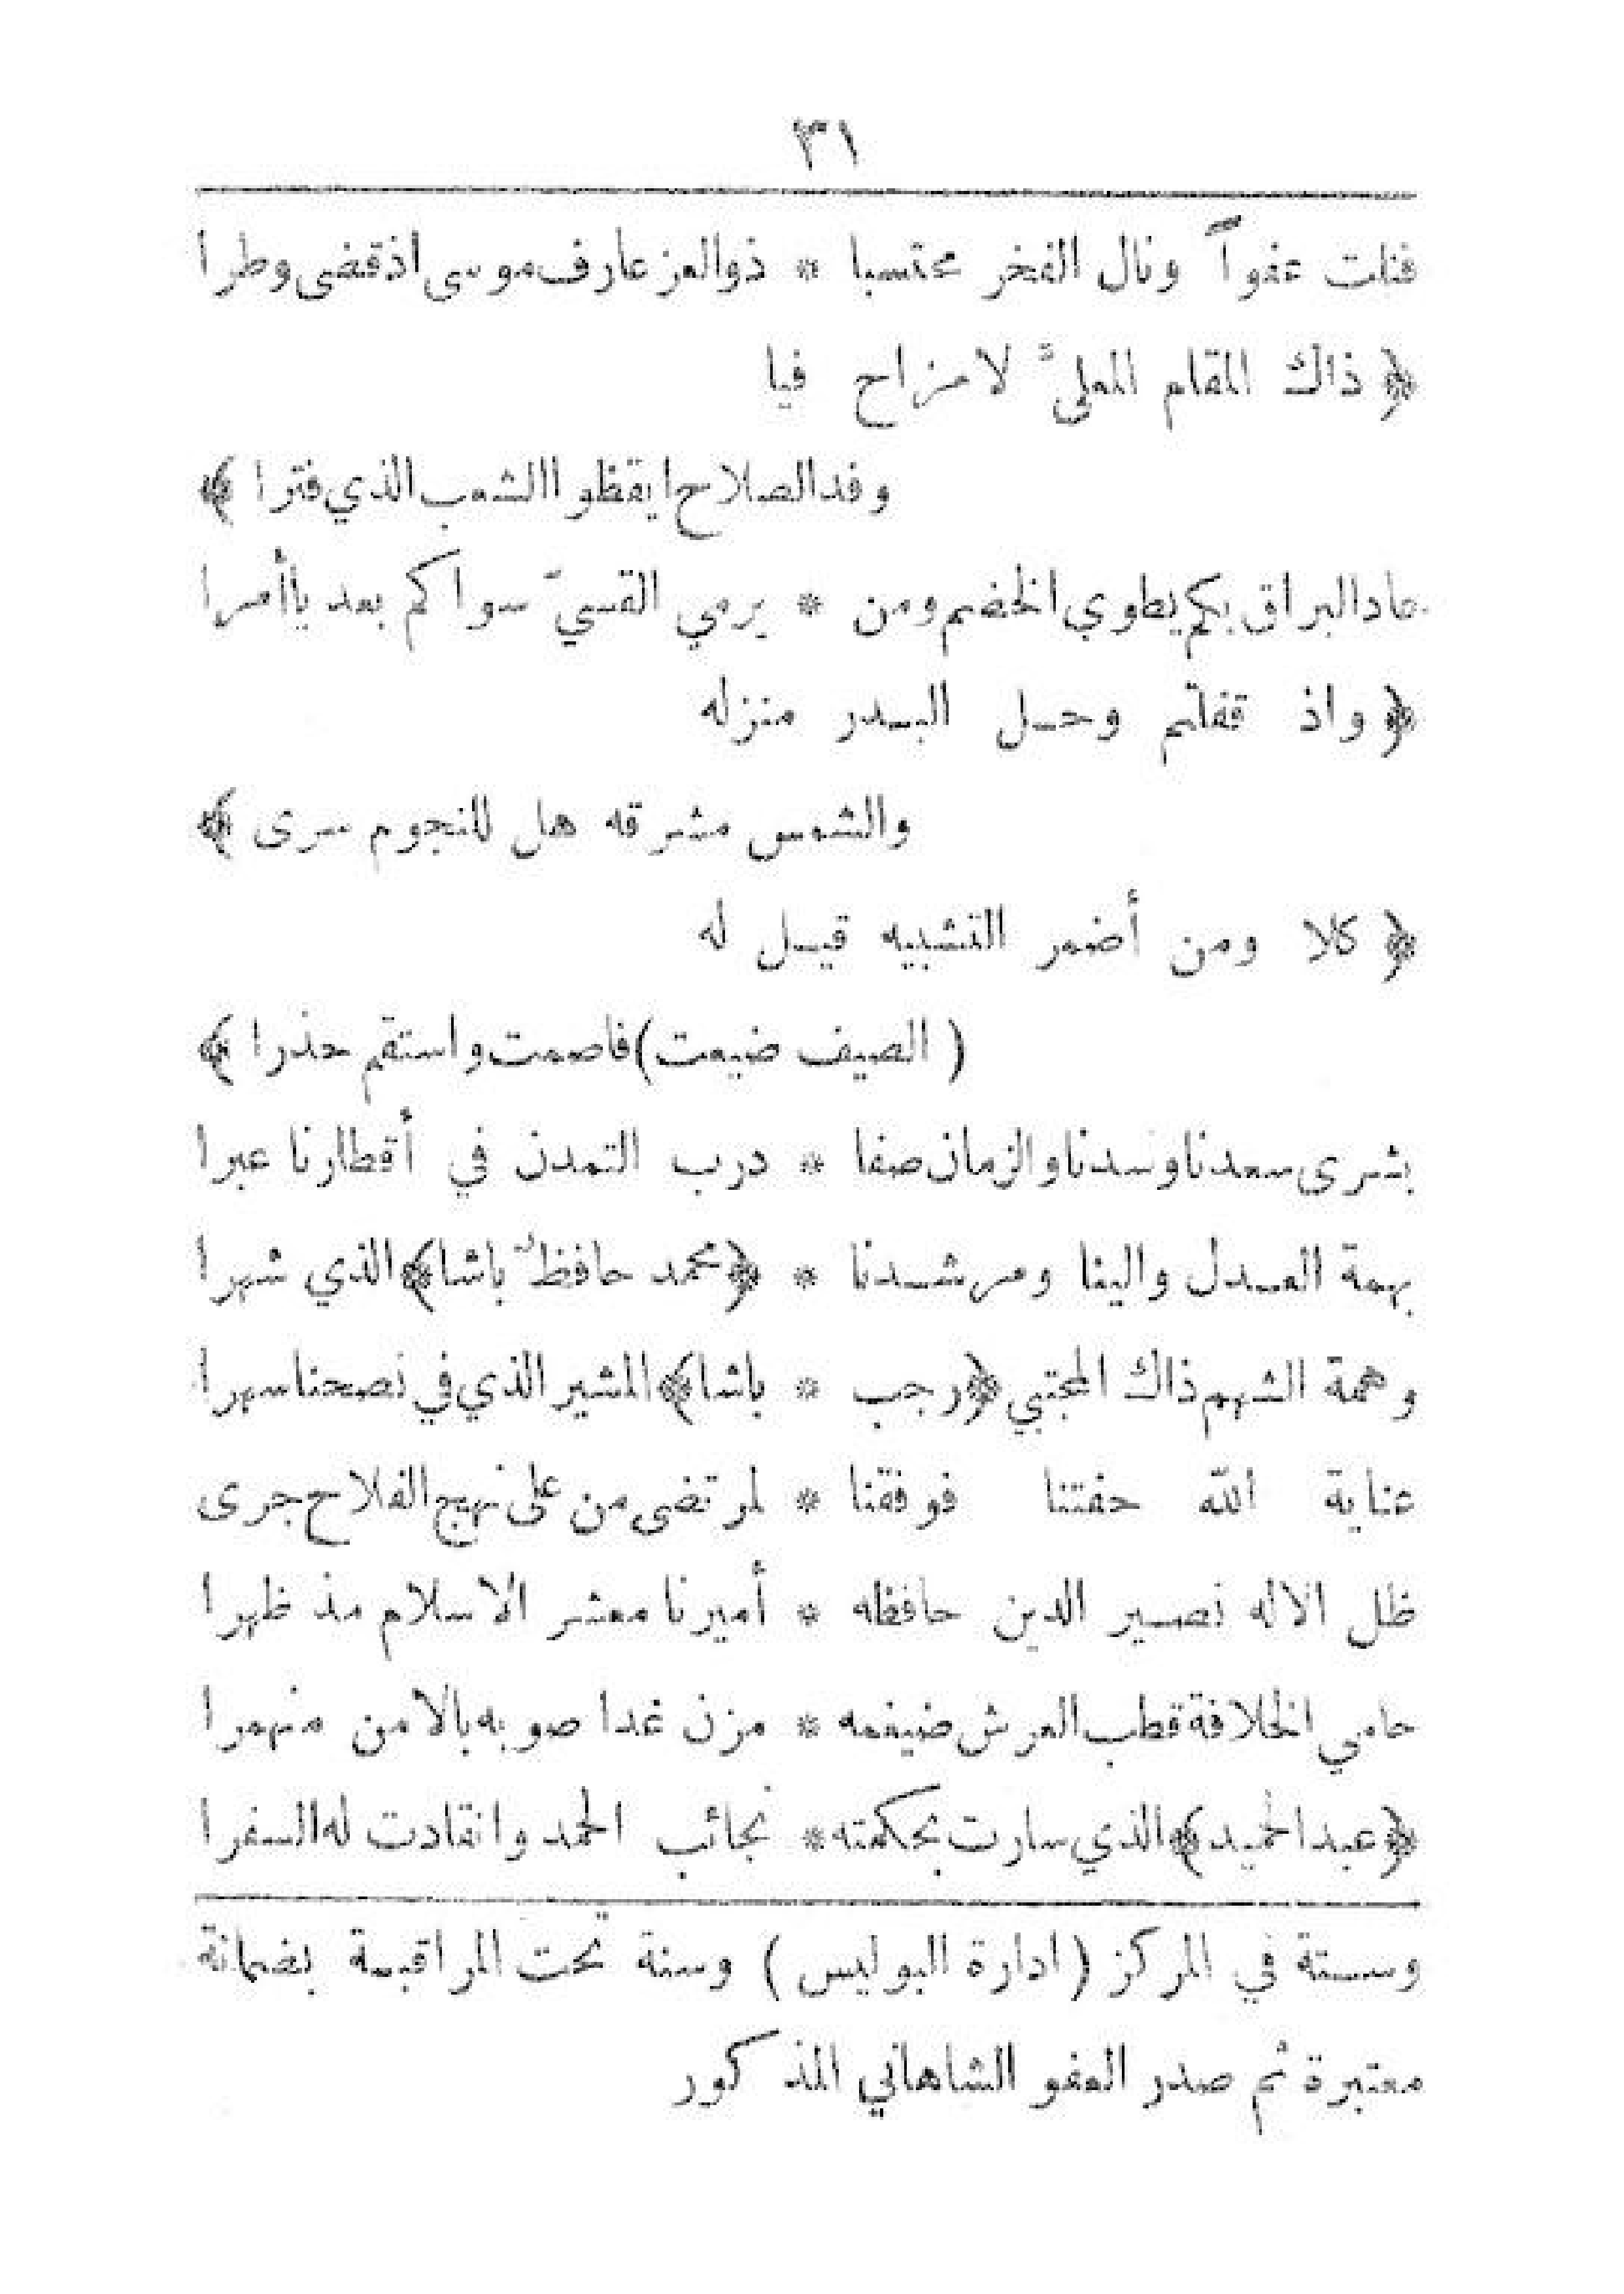 ٣١
فنلت عفواً ونال الفخر محتسبا * ذوالعز عارف موسى اذقضى وطرا
﴿ ذاك المقام العليّ لا مزاح فيا
وفدالصلاح ايقظوا الشعب الذي فترا ﴾
عادالبراق بكم يطوي الخضم ومن * يرمي القسيّ سواكم بعد ياأمرا
﴿ واذ قفلتم وحل البدر منزله
والشمس مشرقه هل للنجوم سرى ﴾
﴿ كلا ومن أضمر التشبيه قيل له
( الصيف ضيعت) فاصمت واستقم حذرا ﴾
بشرى سعدنا وسدنا والزمان صفا * درب التمدن في أقطارنا عبرا
بهمة العدل والينا ومرشدنا * ﴿محمد حافظ باشا﴾ الذي شهرا
وهمة الشهم ذاك المجتبي ﴿رجب * باشا﴾ المشير الذي في نصحنا سهرا
عناية الله حفتنا فوفقنا * لمرتضى من على نهج الفلاح جرى
ظل الاله نصير الدين حافظه * أميرنا معشر الاسلام مذ ظهرا
حامي الخلافة قطب العرش ضيغمه * مزن غدا صوبه بالامن منهمرا
﴿عبدالحميد﴾ الذي سارت بحكمته * نجائب الحمد وانقادت له السفرا
وستة في المركز ( ادارة البوليس ) وسنة تحت المراقبة بضمانة
معتبرة ثم صدر العفو الشاهاني المذكور